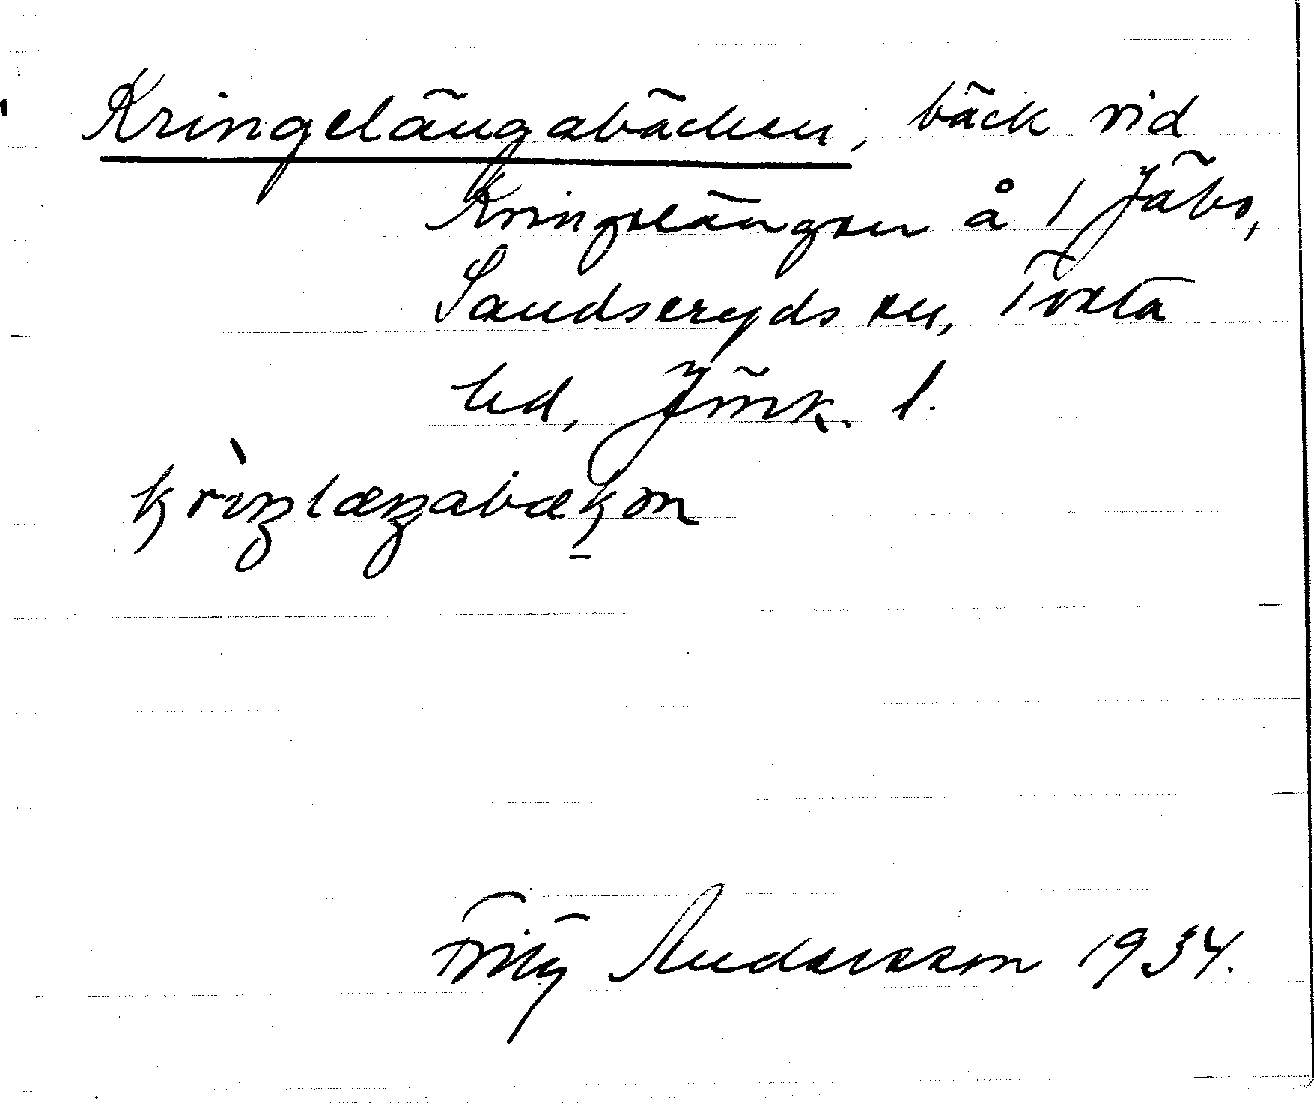 Kringelängabäcken, bäck vid
Kringelängen å 1 Jäbo,
Sandseryds sn, Tveta
hd, Jönk. l.
krìŋlæŋabækən
Fritz Andersson 1934.